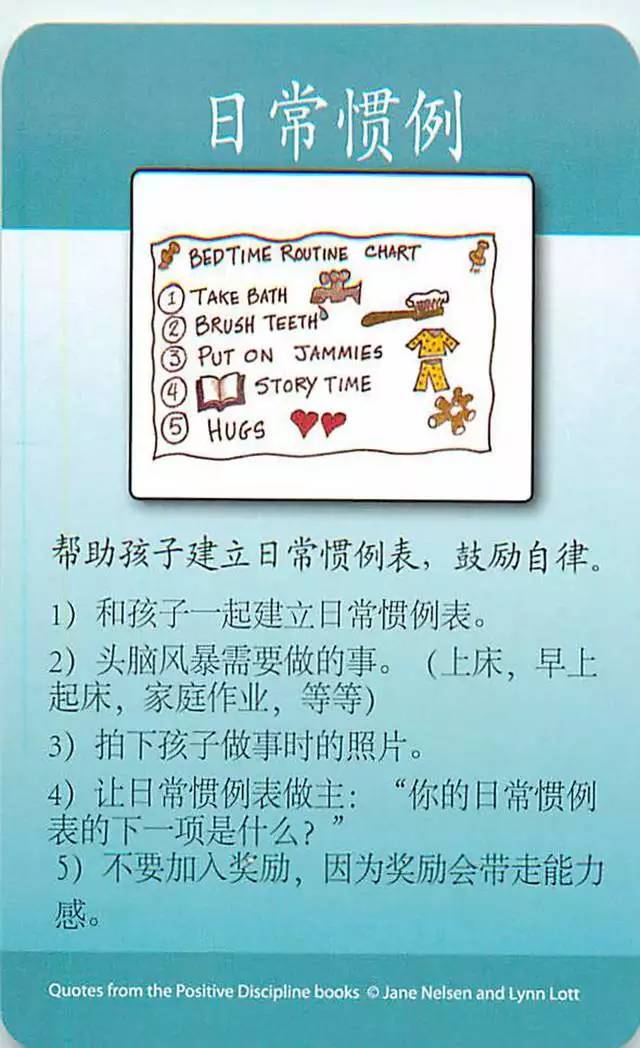 日常惯例
BEDTIME ROUTINE CHART
1 TAKE BATH
2 BRUSH TEETH
3 PUT ON JAMMIES
4 STORY TIME
5 HUGS
帮助孩子建立日常惯例表，鼓励自律。
1）和孩子一起建立日常惯例表。
2）头脑风暴需要做的事。（上床，早上
起床，家庭作业，等等）
3）拍下孩子做事时的照片。
4）让日常惯例表做主：“你的日常惯例
表的下一项是什么？”
5）不要加入奖励，因为奖励会带走能力
感。
Quotes from the Positive Discipline books © Jane Nelsen and Lynn Lott